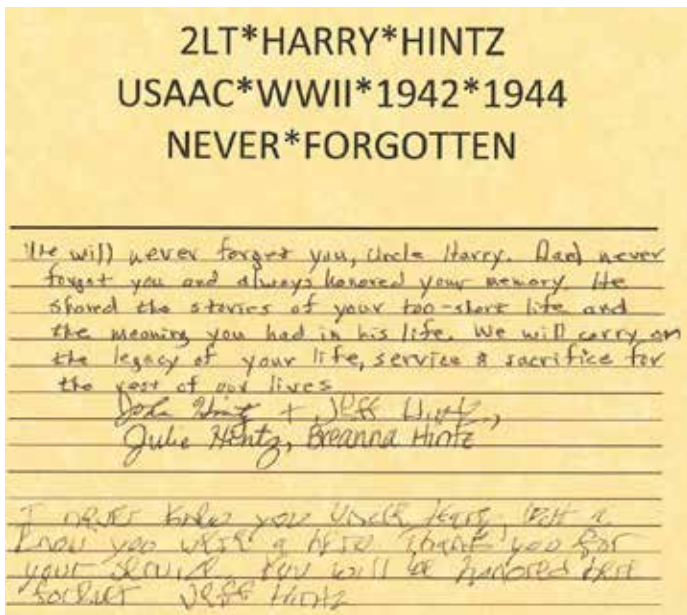 2LT*HARRY*HINTZ
USAAC*WWII*1942*1944
NEVER*FORGOTTEN
We will never forget you, Uncle Harry. Dad never
forgot you and always honored your memory. He
shared the stories of your too-short life and
the meaning you had in his life. We will carry on
the legacy of your life, service & sacrifice for
the rest of our lives
John Hintz + Jeff Hintz,
Julie Hintz, Breanna Hintz
I never knew you Uncle Harry, but I
know you were a hero. Thank you for
your service. You will be honored here
forever Jeff Hintz